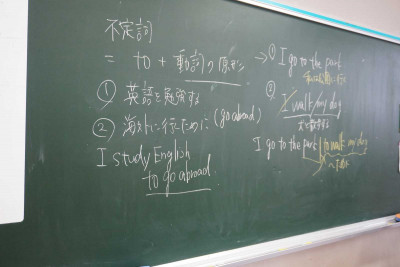 不定詞
= to + 動詞の原形
① 英語を勉強する
② 海外に行くために (go abroad)
I study English
to go abroad
→ ① I go to the park
②
I walk my dog
犬を散歩する
I go to the park to walk my dog